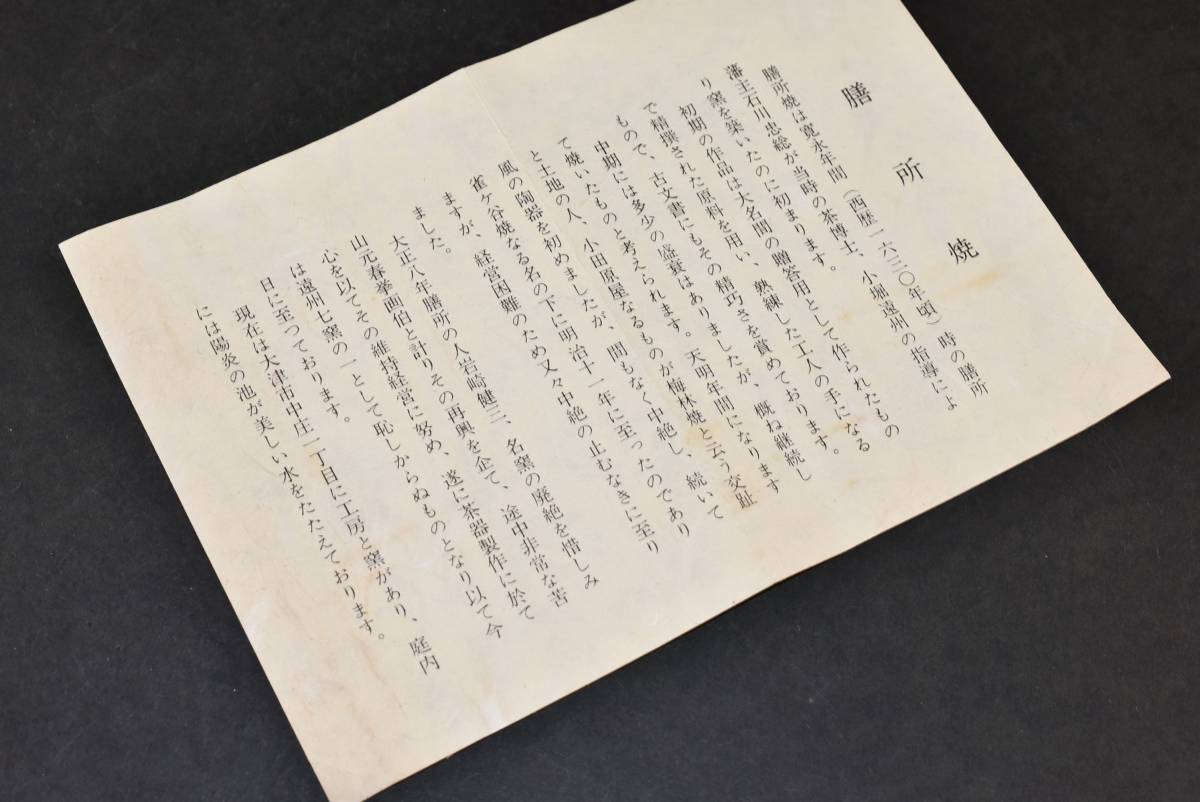 膳所焼
膳所焼は寛永年間(西歴一六三〇年頃)時の膳所
藩主石川忠総が当時の茶博士、小堀遠州の指導によ
り窯を築いたのに初まります。
初期の作品は大名間の贈答用として作られたもの
で精撰された原料を用い、熟練した工人の手になる
もので、古文書にもその精巧さを賞めております。
中期には多少の盛衰はありましたが、概ね継続し
て焼いたものと考えられます。天明年間になります
と土地の人、小田原屋なるものが梅林焼と云う交趾
風の陶器を初めましたが、間もなく中絶し、続いて
雀ケ谷焼なる名の下に明治十一年に至ったのであり
ますが、経営困難のため又々中絶の止むなきに至り
ました。
大正八年膳所の人岩崎健三、名窯の廃絶を惜しみ
山元春挙画伯と計りその再興を企て、途中非常な苦
心を以てその維持経営に努め、遂に茶器製作に於て
は遠州七窯の一として恥しからぬものとなり以て今
日に至つております。
現在は大津市中庄一丁目に工房と窯があり、庭内
には陽炎の池が美しい水をたたえております。